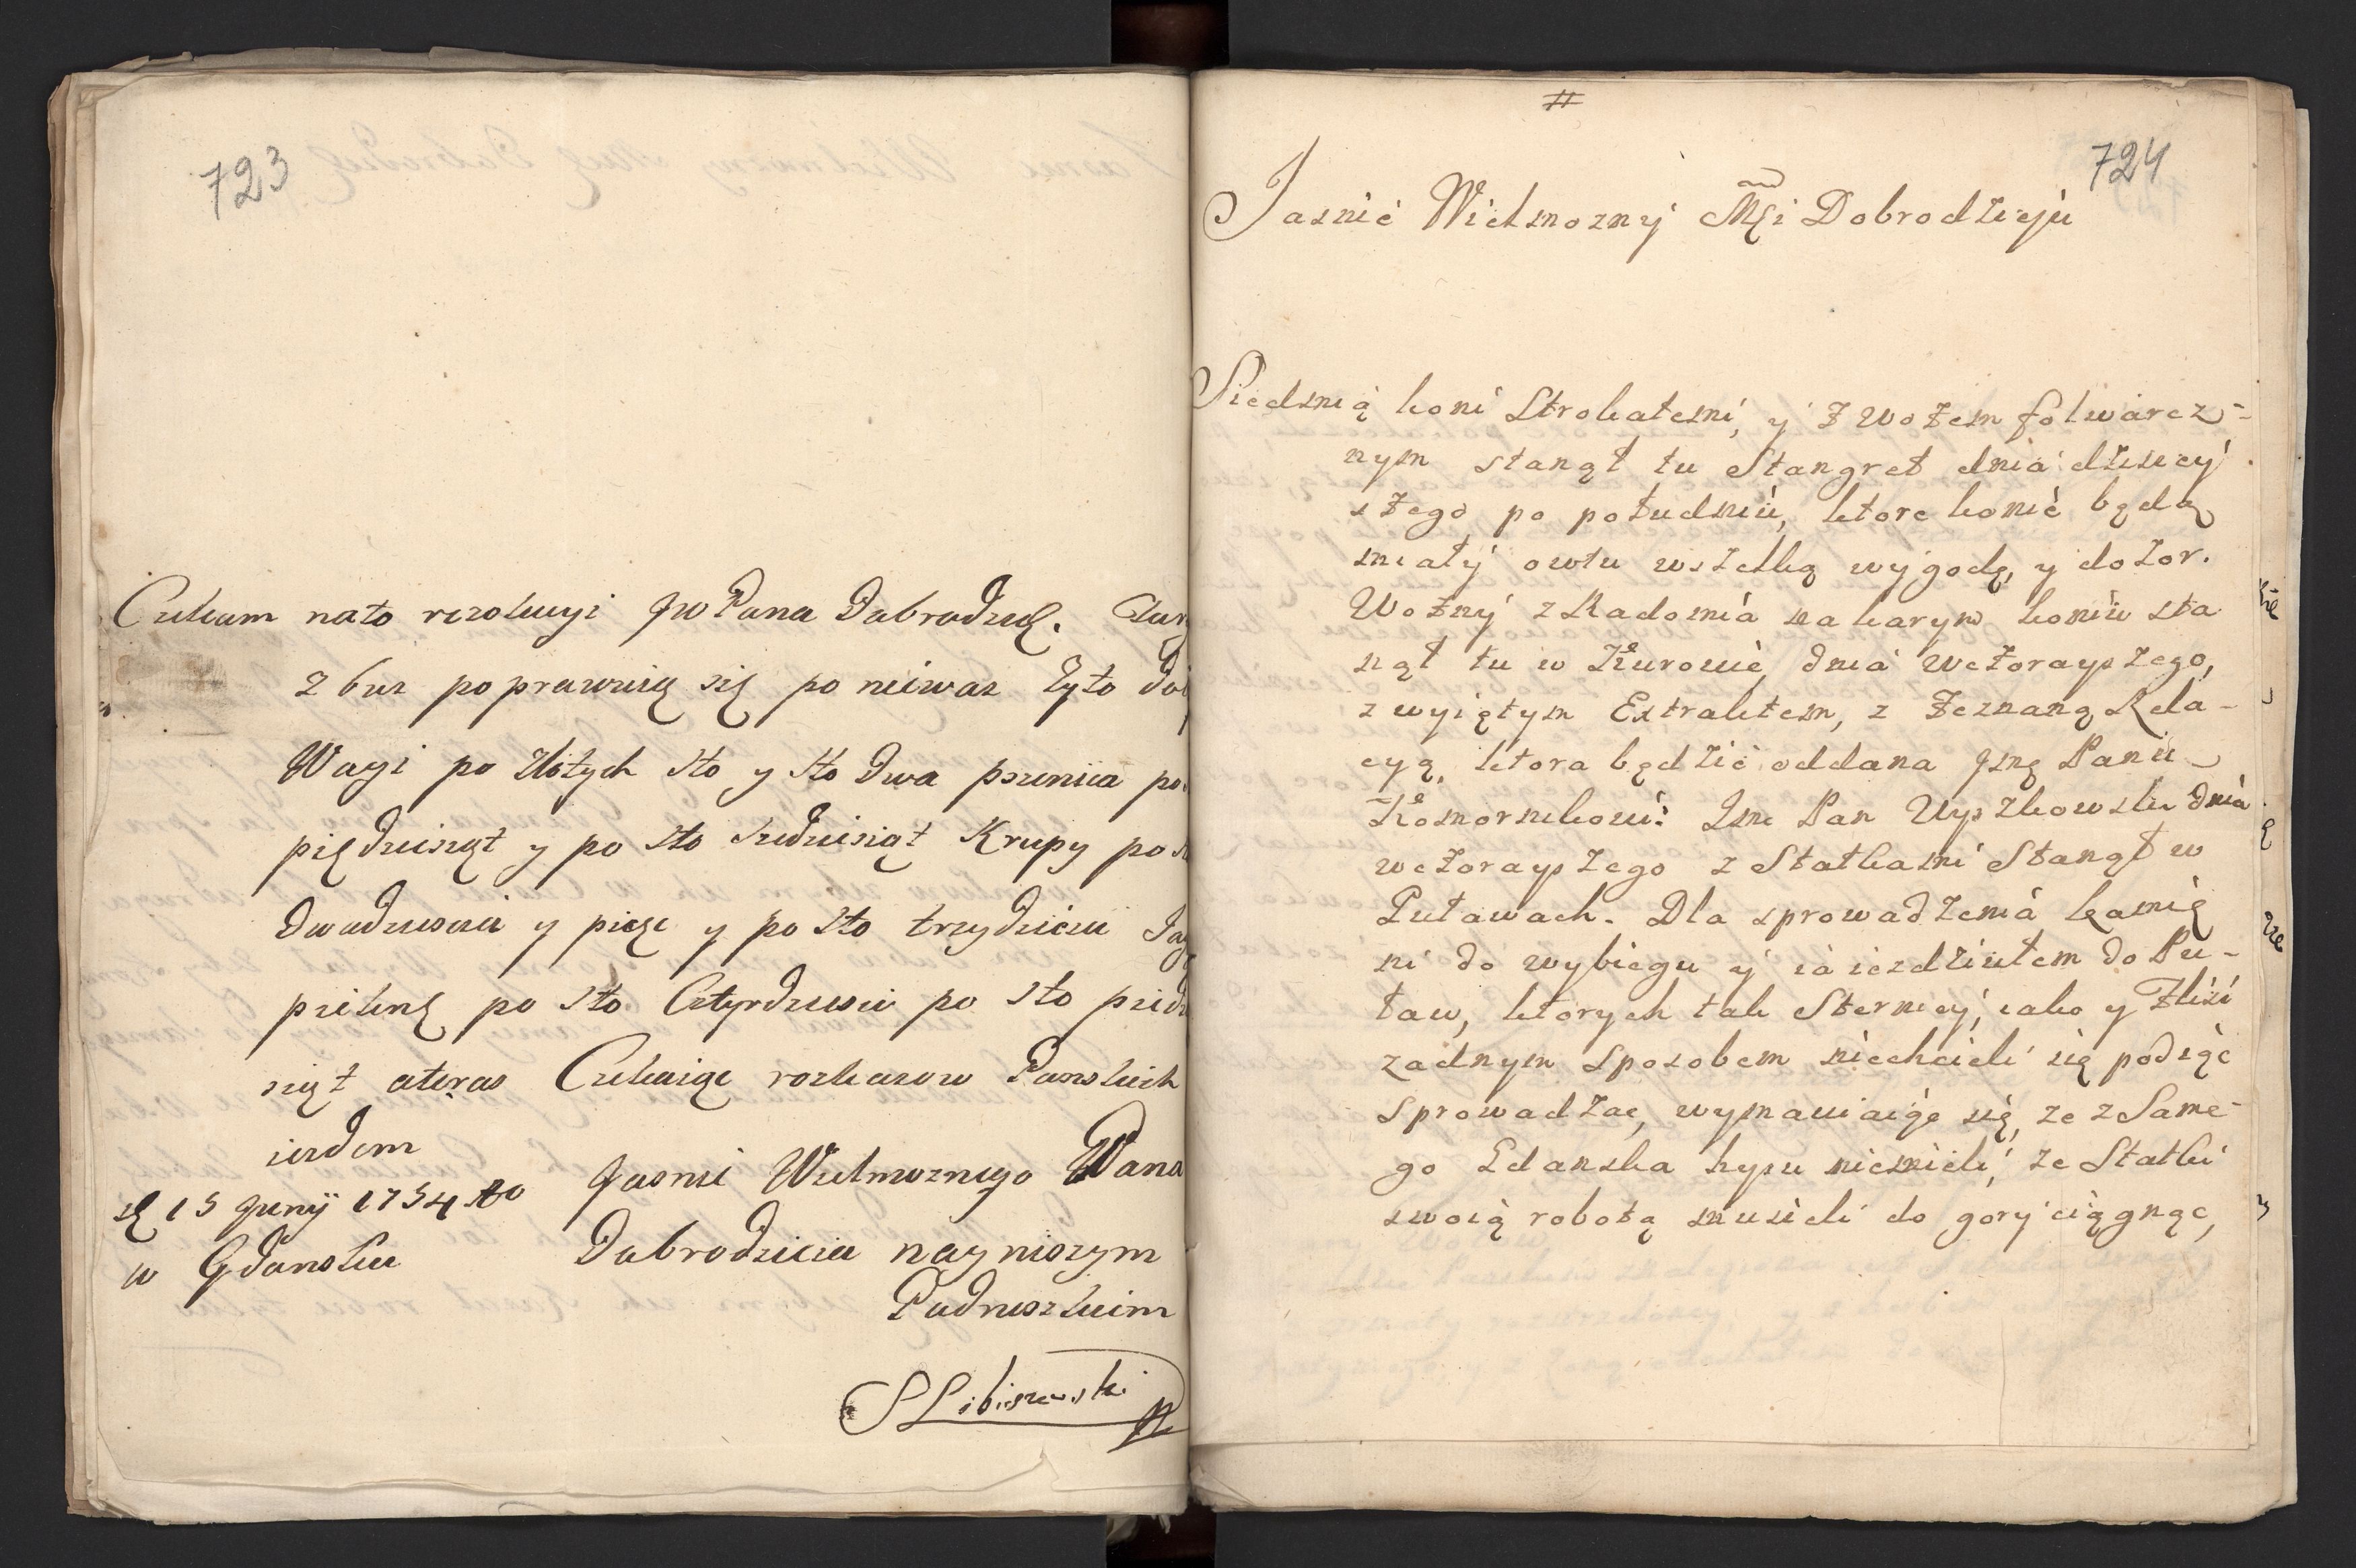 723
Czekam nato rezolucyi JW Pana Dobrodzieia.
z bus poprawuię się poniewaz Zyto
Wagi po Złotych sto y sto Dwa pszenica
pięcdziesiąt y po sto siedziesiąt Krupy
Dwadziescia y pięc y po sto trzydziesci
psienne po sto Cztyrdziesci po sto
siąt ateras Czekaiąc roskazow Panskich
iestem
15 Junij 1754 to Jasnie Wielmoznego Pana
w Gdansku Dobrodzieia naynizszym
Podnuszkiem
S Libiszewski
#
724
Jasnie Wielmozny Mći Dobrodzieju
Siedmią koni strokatemi, y z wozem folwarcz-
nym stanął tu Stangret dnia dzisiey
szego po południu, ktore konie będą
miały owtu wszelką wygodę, y dozor.
Wozny z Radomia na karym koniu sta
nął tu w Kurowie dnia wczorayszego,
z wyiętym Extraktem, z zeznaną Rela-
cyą, ktora będzie oddana Jmę Panu
Komornikowi: Jmc Pan Wyszkowski dnia
wczorayszego z Statkami Stanął w
Puławach. Dla sprowadzenia kamię
ni do wybiegu y ia iezdziułem do Pu-
ław, ktorych tak Sternicy, iako y Flisi
zadnym sposobem niechcieli się podiąc
sprowadzac, wymawiaiąc się, ze z Same-
go Gdanska hypu niemieli, ze Statki
swoią robotą musieli do gory ciągnąc,